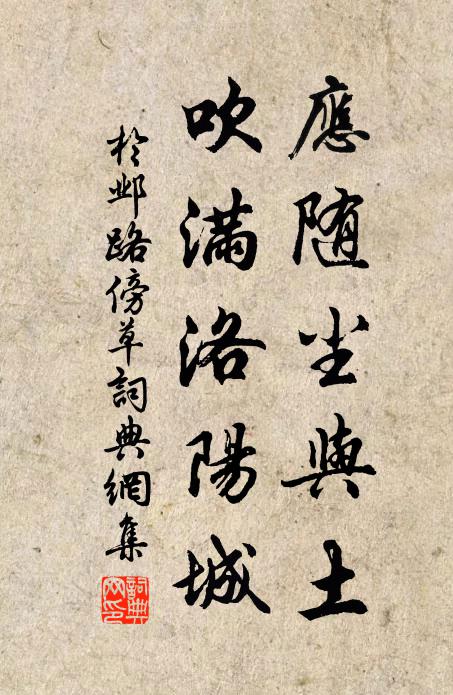 應随尘與土
吹滿洛陽城
於邺路傍草詞典網集
詞典
网印